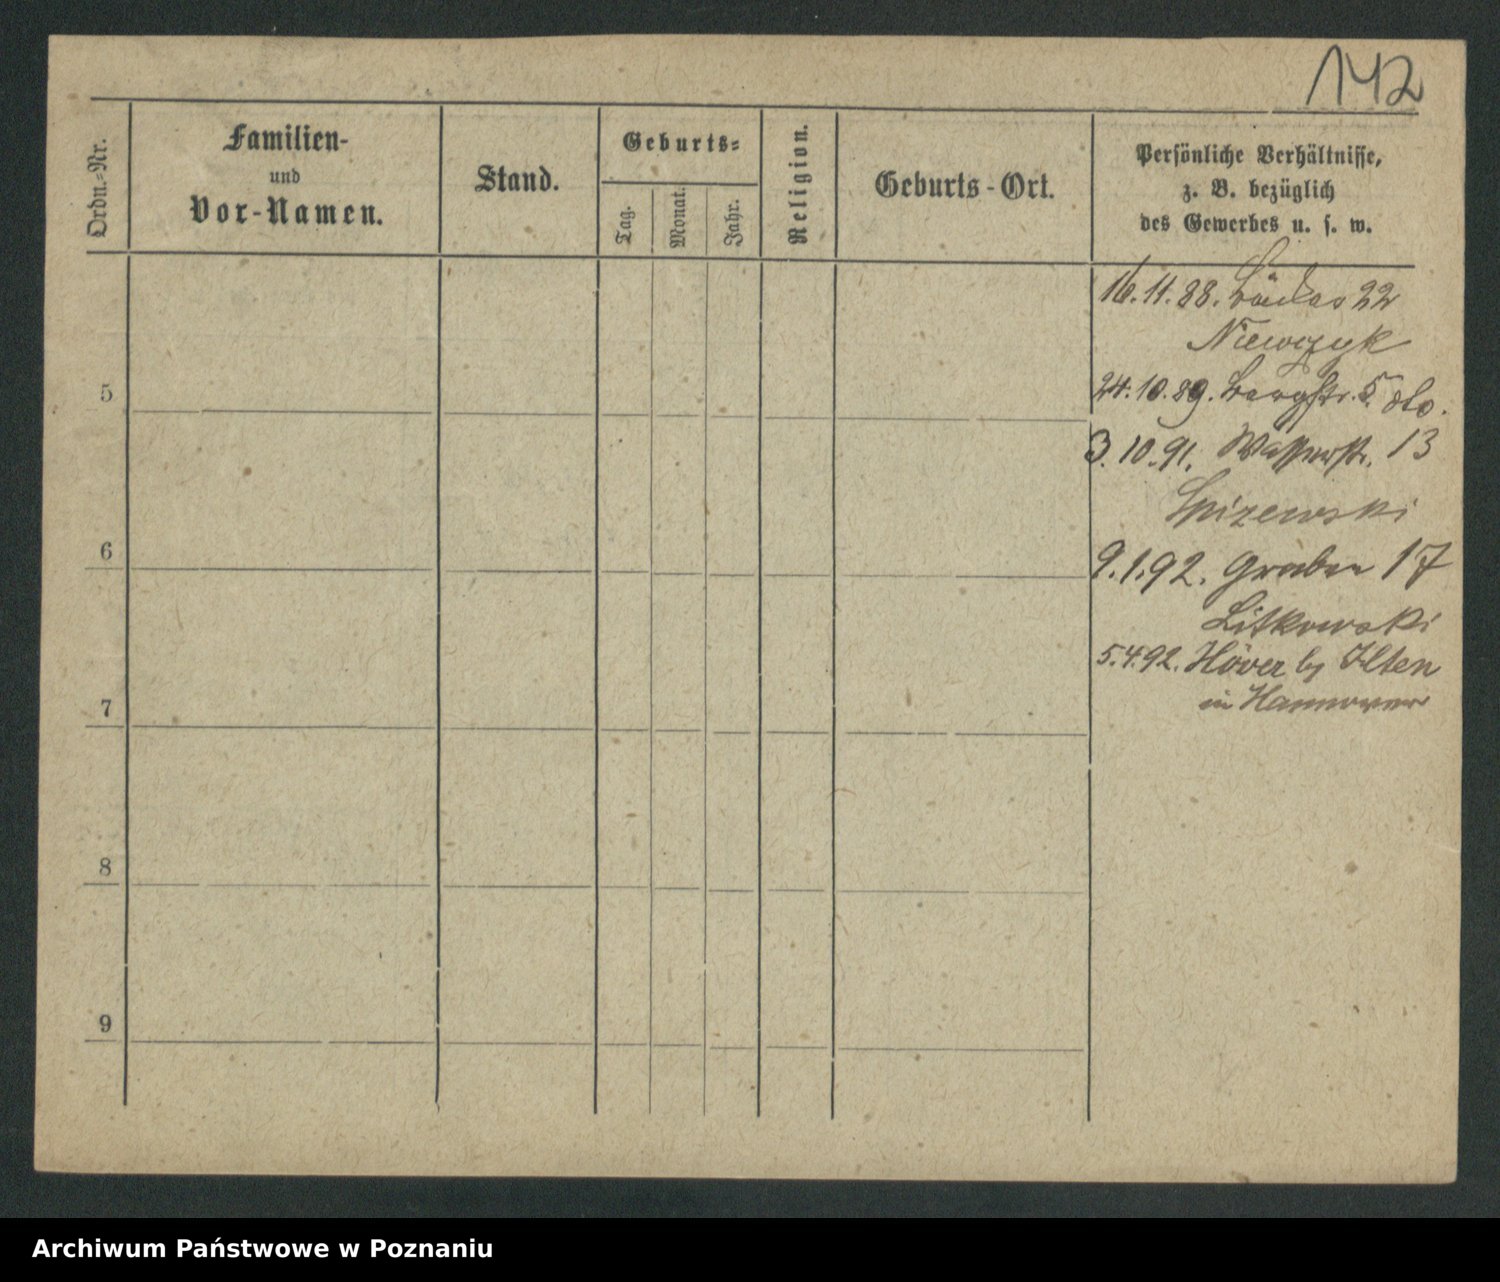 142
Ordn.-Nr.
Familien-
und
Vor-Namen.
Stand.
Geburts-
Tag.
Monat.
Jahr.
Religion.
Geburts-Ort.
Persönliche Verhältnisse,
z. B. bezüglich
des Gewerbes u. s. w.
16.11.88. 22
24.10.89. Bergstr. 5. dto.
3.10.91. Wasserstr. 13
9.1.92. Graben 17
Litkowski
5.4.92. Höver by Ilten
in Hannover
5
6
7
8
9
Archiwum Państwowe w Poznaniu